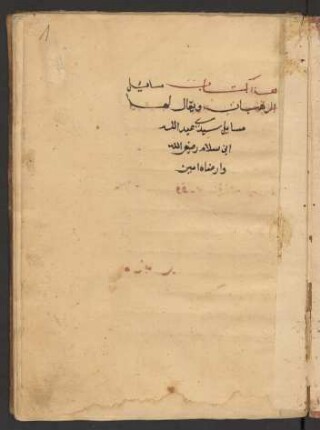 1
هذا كتاب مسايل
الرهبان ويقال لها
مسايل سيدي عبد الله
ابن سلام رضي الله
وارضاه امين